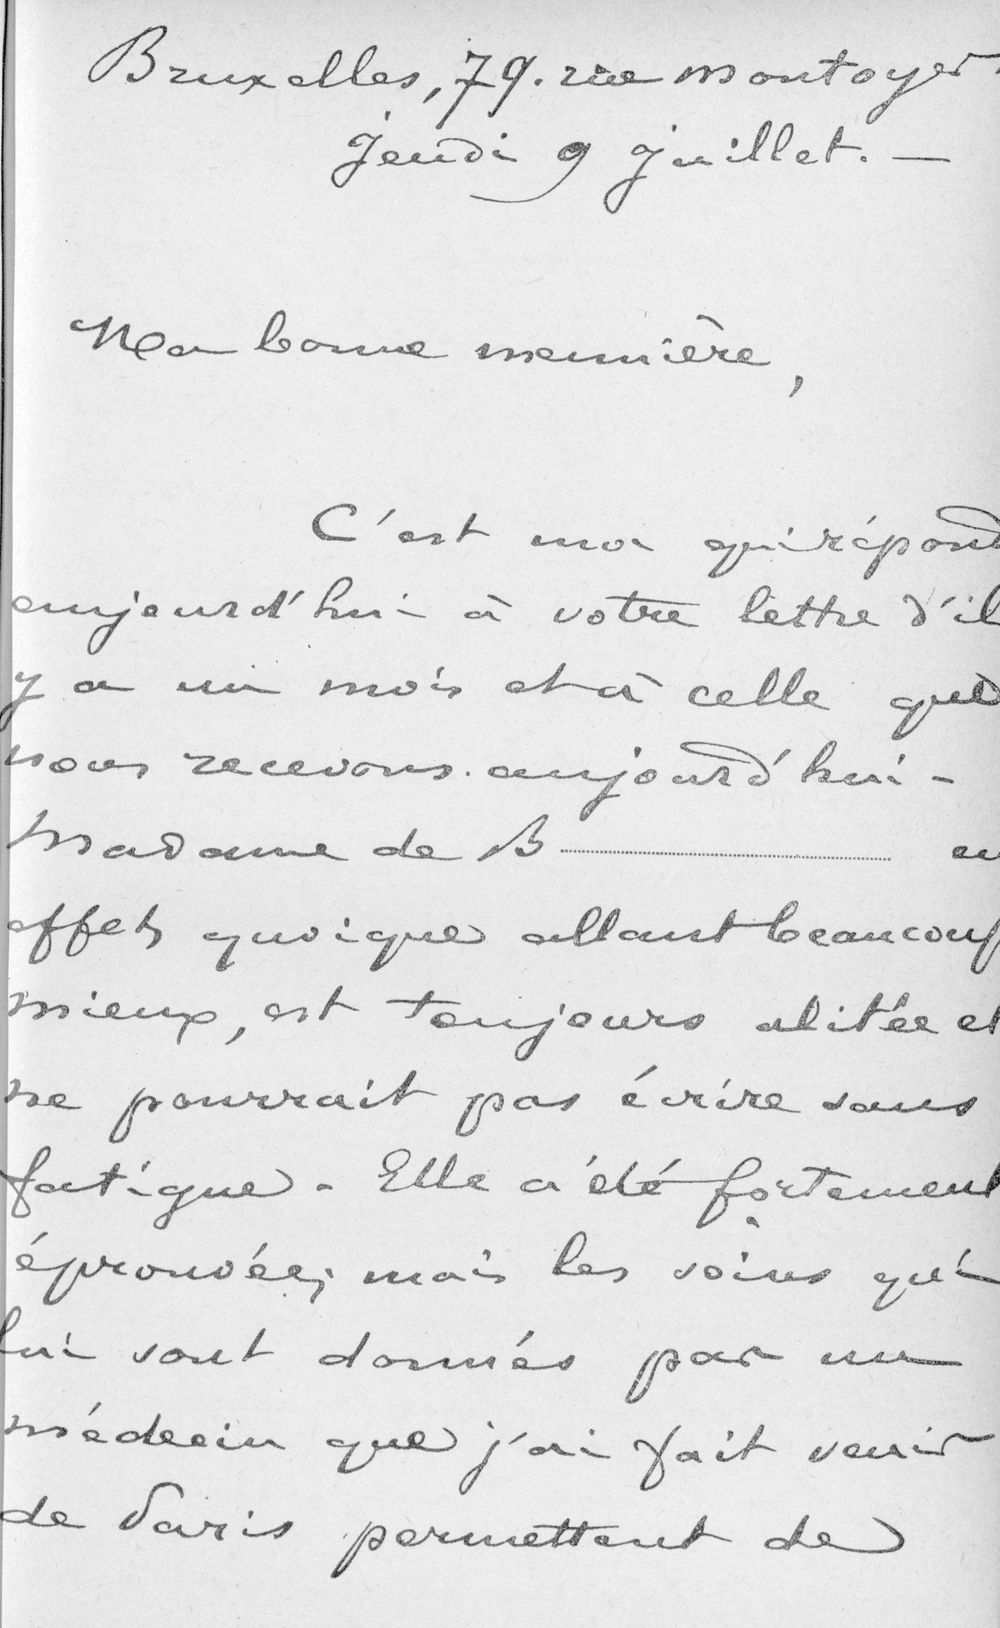 Bruxelles, 79. rue Montoyer.
Jeudi 9 Juillet. —
Ma bonne meunière,
C'est moi qui répond
aujourd'hui à votre lettre d'il
y a un mois et à celle que
nous recevons aujourd'hui -
Madame de B............... en
effet, quoique allant beaucoup
mieux, est toujours alitée et
ne pourrait pas écrire sans
fatigue. Elle a été fortement
éprouvée; mais les soins qui
lui sont donnés par un
médecin que j'ai fait venir
de Paris permettent de